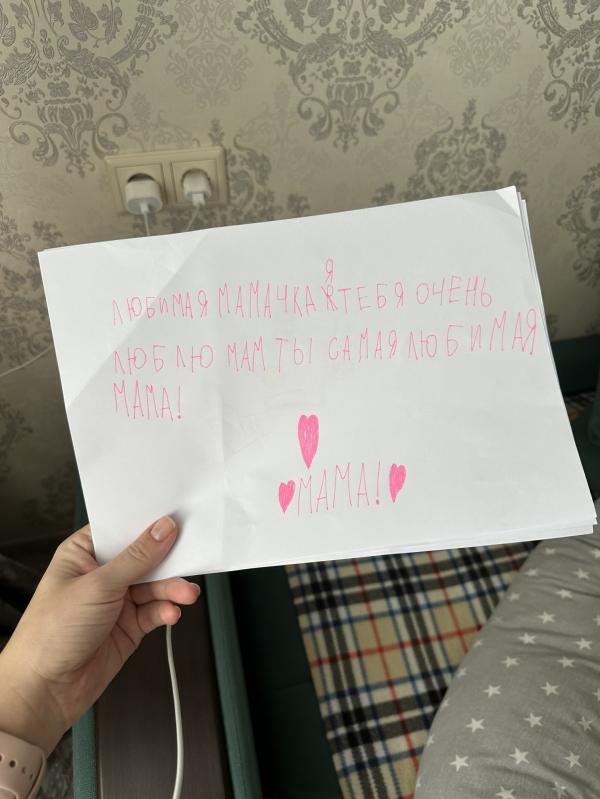 ЛЮБИМАЯ МАМАЧКА Я ТЕБЯ ОЧЕНЬ
ЛЮБЛЮ МАМ ТЫ САМАЯ ЛЮБИМАЯ
МАМА!
МАМА!